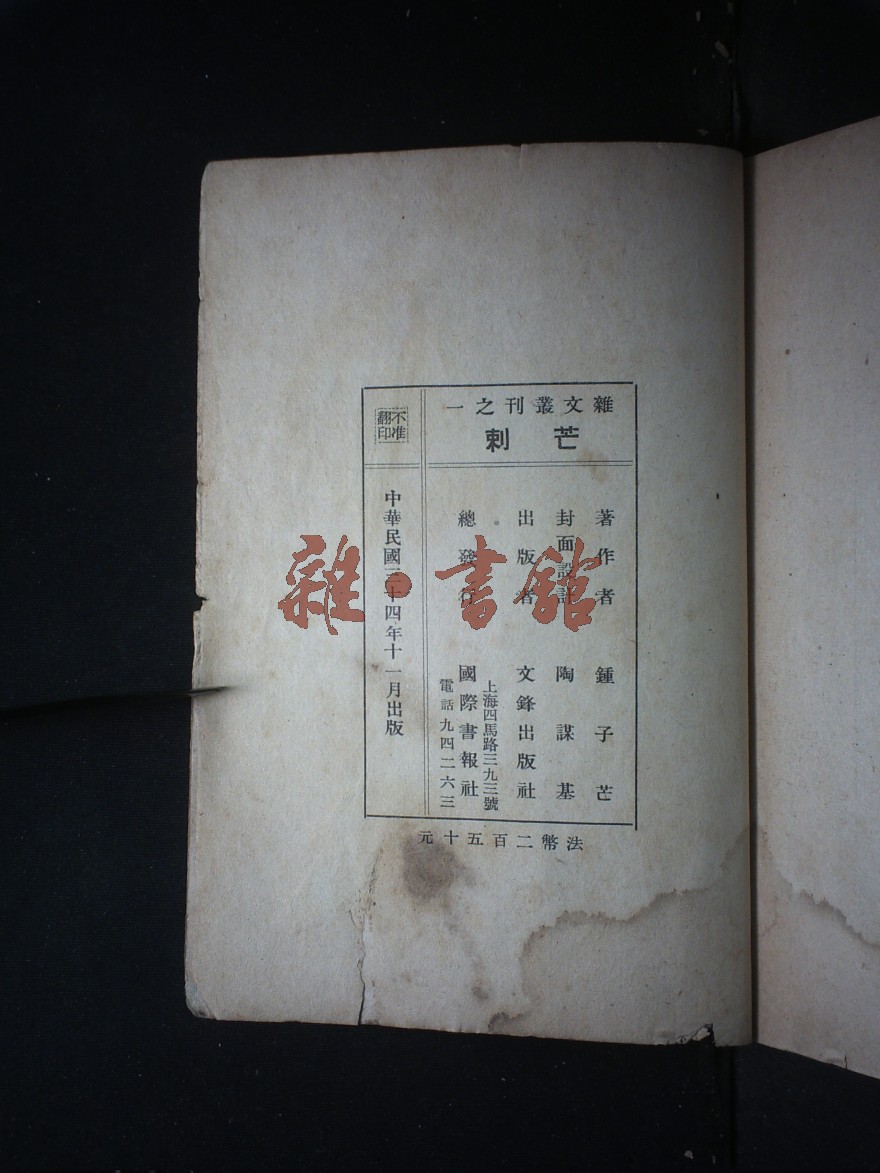 雜文叢刊之一
芒刺
著作者 鍾子芒
封面設計 陶謀基
出版者 文鋒出版社
總發行 國際書報社
上海四馬路三九三號
電話九四二六三
不准翻印
中華民國三十四年十一月出版
法幣二百五十元
雜·書館